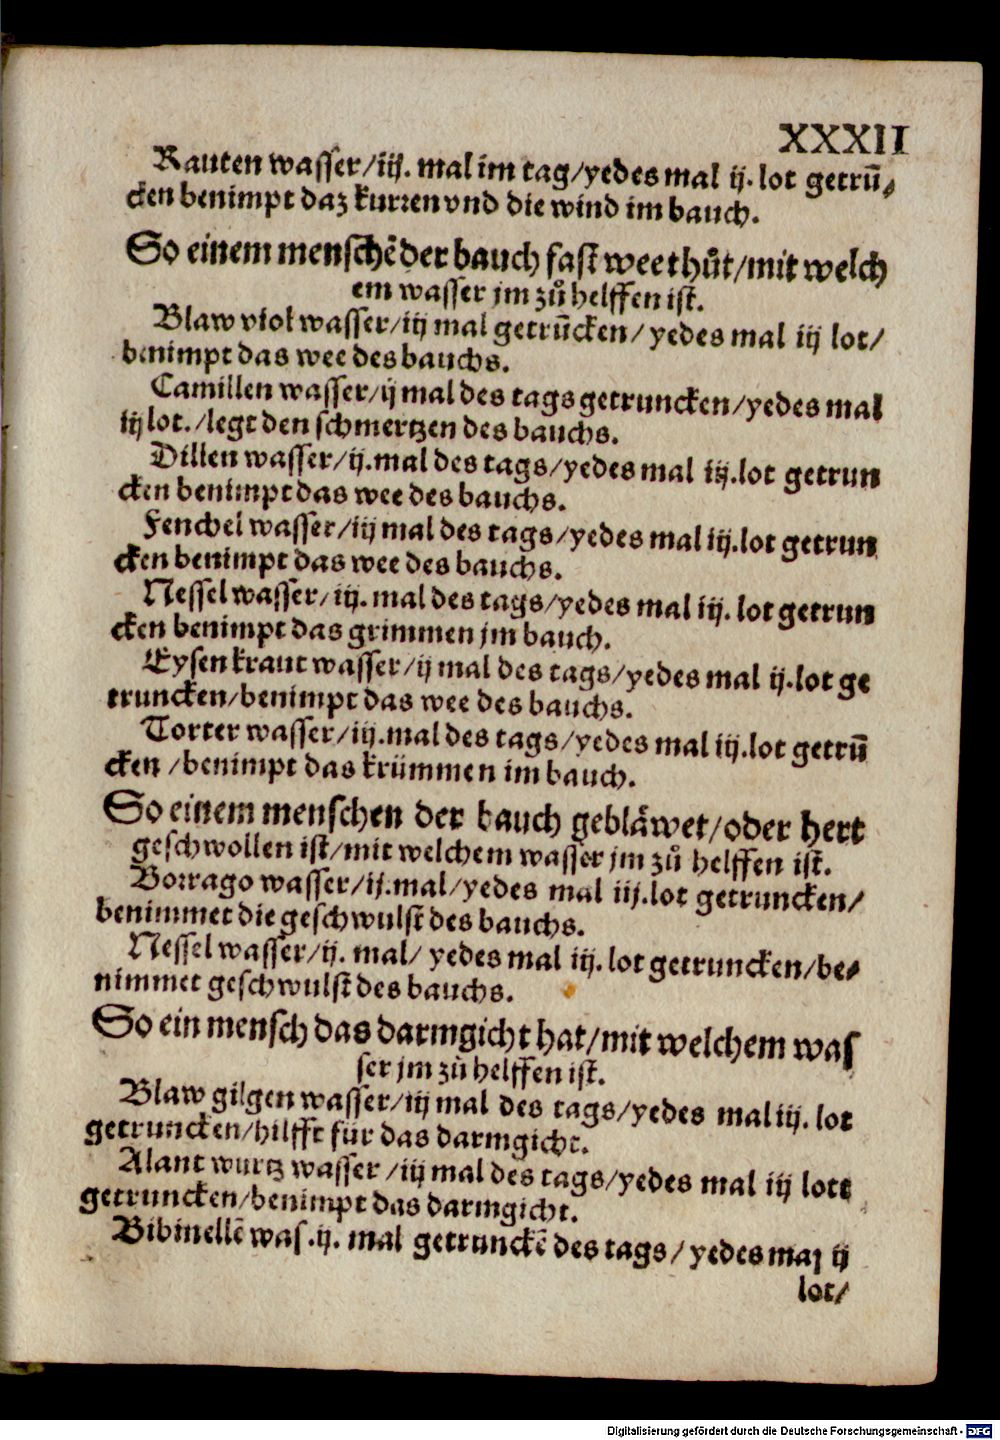 XXXII
Rauten wasser/iij. mal im tag/yedes mal ij. lot getrū⸗
cken benimpt daz kurren vnd die wind im bauch.
So einem menschē der bauch fast wee thůt/mit welch
em wasser jm zů helffen ist.
Blaw viol wasser/iij mal getrūcken/ yedes mal iij lot/
benimpt das wee des bauchs.
Camillen wasser/ij mal des tags getruncken/yedes mal
iij lot./legt den schmertzen des bauchs.
Dillen wasser/ij.mal des tags/yedes mal iij.lot getrun
cken benimpt das wee des bauchs.
Fenchel wasser/iij mal des tags/yedes mal iij.lot getrun
cken benimpt das wee des bauchs.
Nessel wasser/iij. mal des tags/yedes mal iij. lot getrun
cken benimpt das grimmen jm bauch.
Eysen kraut wasser/ij mal des tags/yedes mal ij.lot ge
truncken/benimpt das wee des bauchs.
Torter wasser/iij.mal des tags/yedes mal iij.lot getrū
cken /benimpt das krümmen im bauch.
So einem menschen der bauch gebläwet/oder hert
geschwollen ist/mit welchem wasser jm zů helffen ist.
Borrago wasser/ij.mal/yedes mal iij.lot getruncken/
benimmet die geschwulst des bauchs.
Nessel wasser/ij. mal/ yedes mal iij. lot getruncken/be⸗
nimmet geschwulst des bauchs.
So ein mensch das darmgicht hat/mit welchem was
ser jm zů helffen ist.
Blaw gilgen wasser/iij mal des tags/yedes mal iij. lot
getruncken/hilfft für das darmgicht.
Alant wurtz wasser /iij mal des tags/yedes mal iij lott
getruncken/benimpt das darmgicht.
Bibinellē was.ij. mal getrunckē des tags/ yedes mal ij
lot/
Digitalisierung gefördert durch die Deutsche Forschungsgemeinschaft - DFG